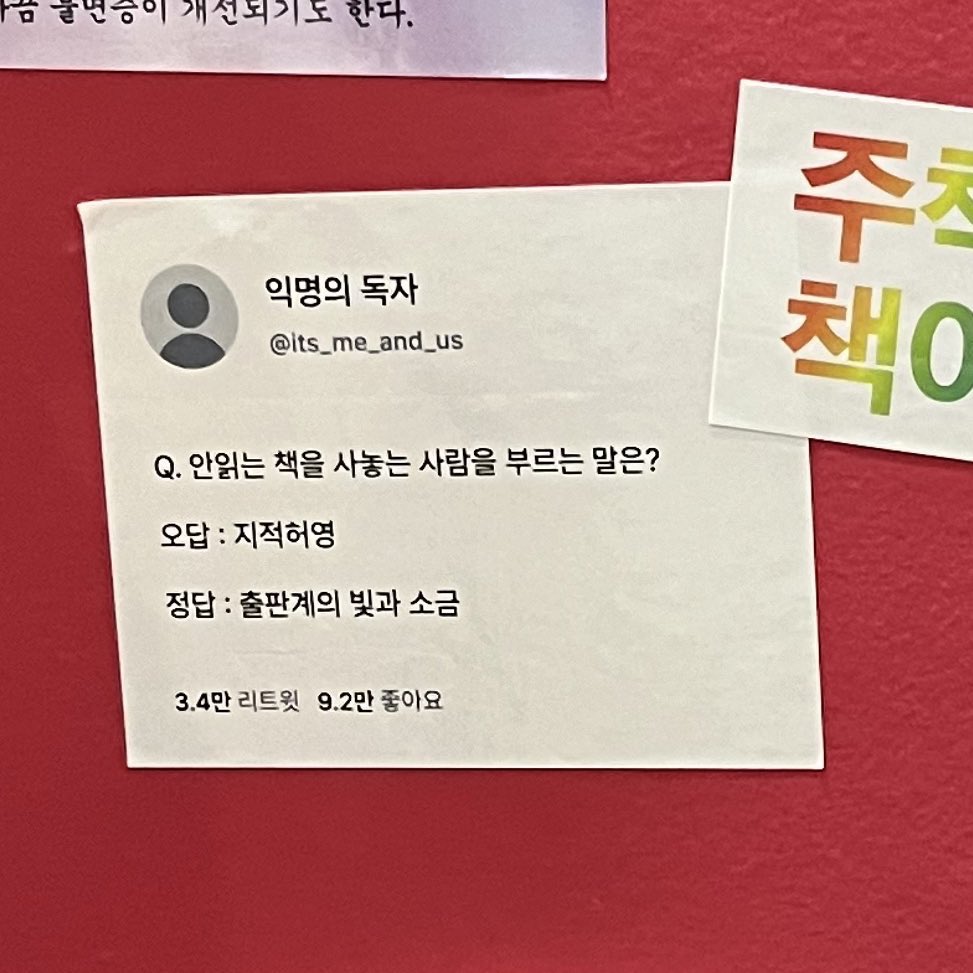 불면증이 개선되기도 한다.
주
책
익명의 독자
@its_me_and_us
Q. 안읽는 책을 사놓는 사람을 부르는 말은?
오답 : 지적허영
정답 : 출판계의 빛과 소금
3.4만 리트윗 9.2만 좋아요